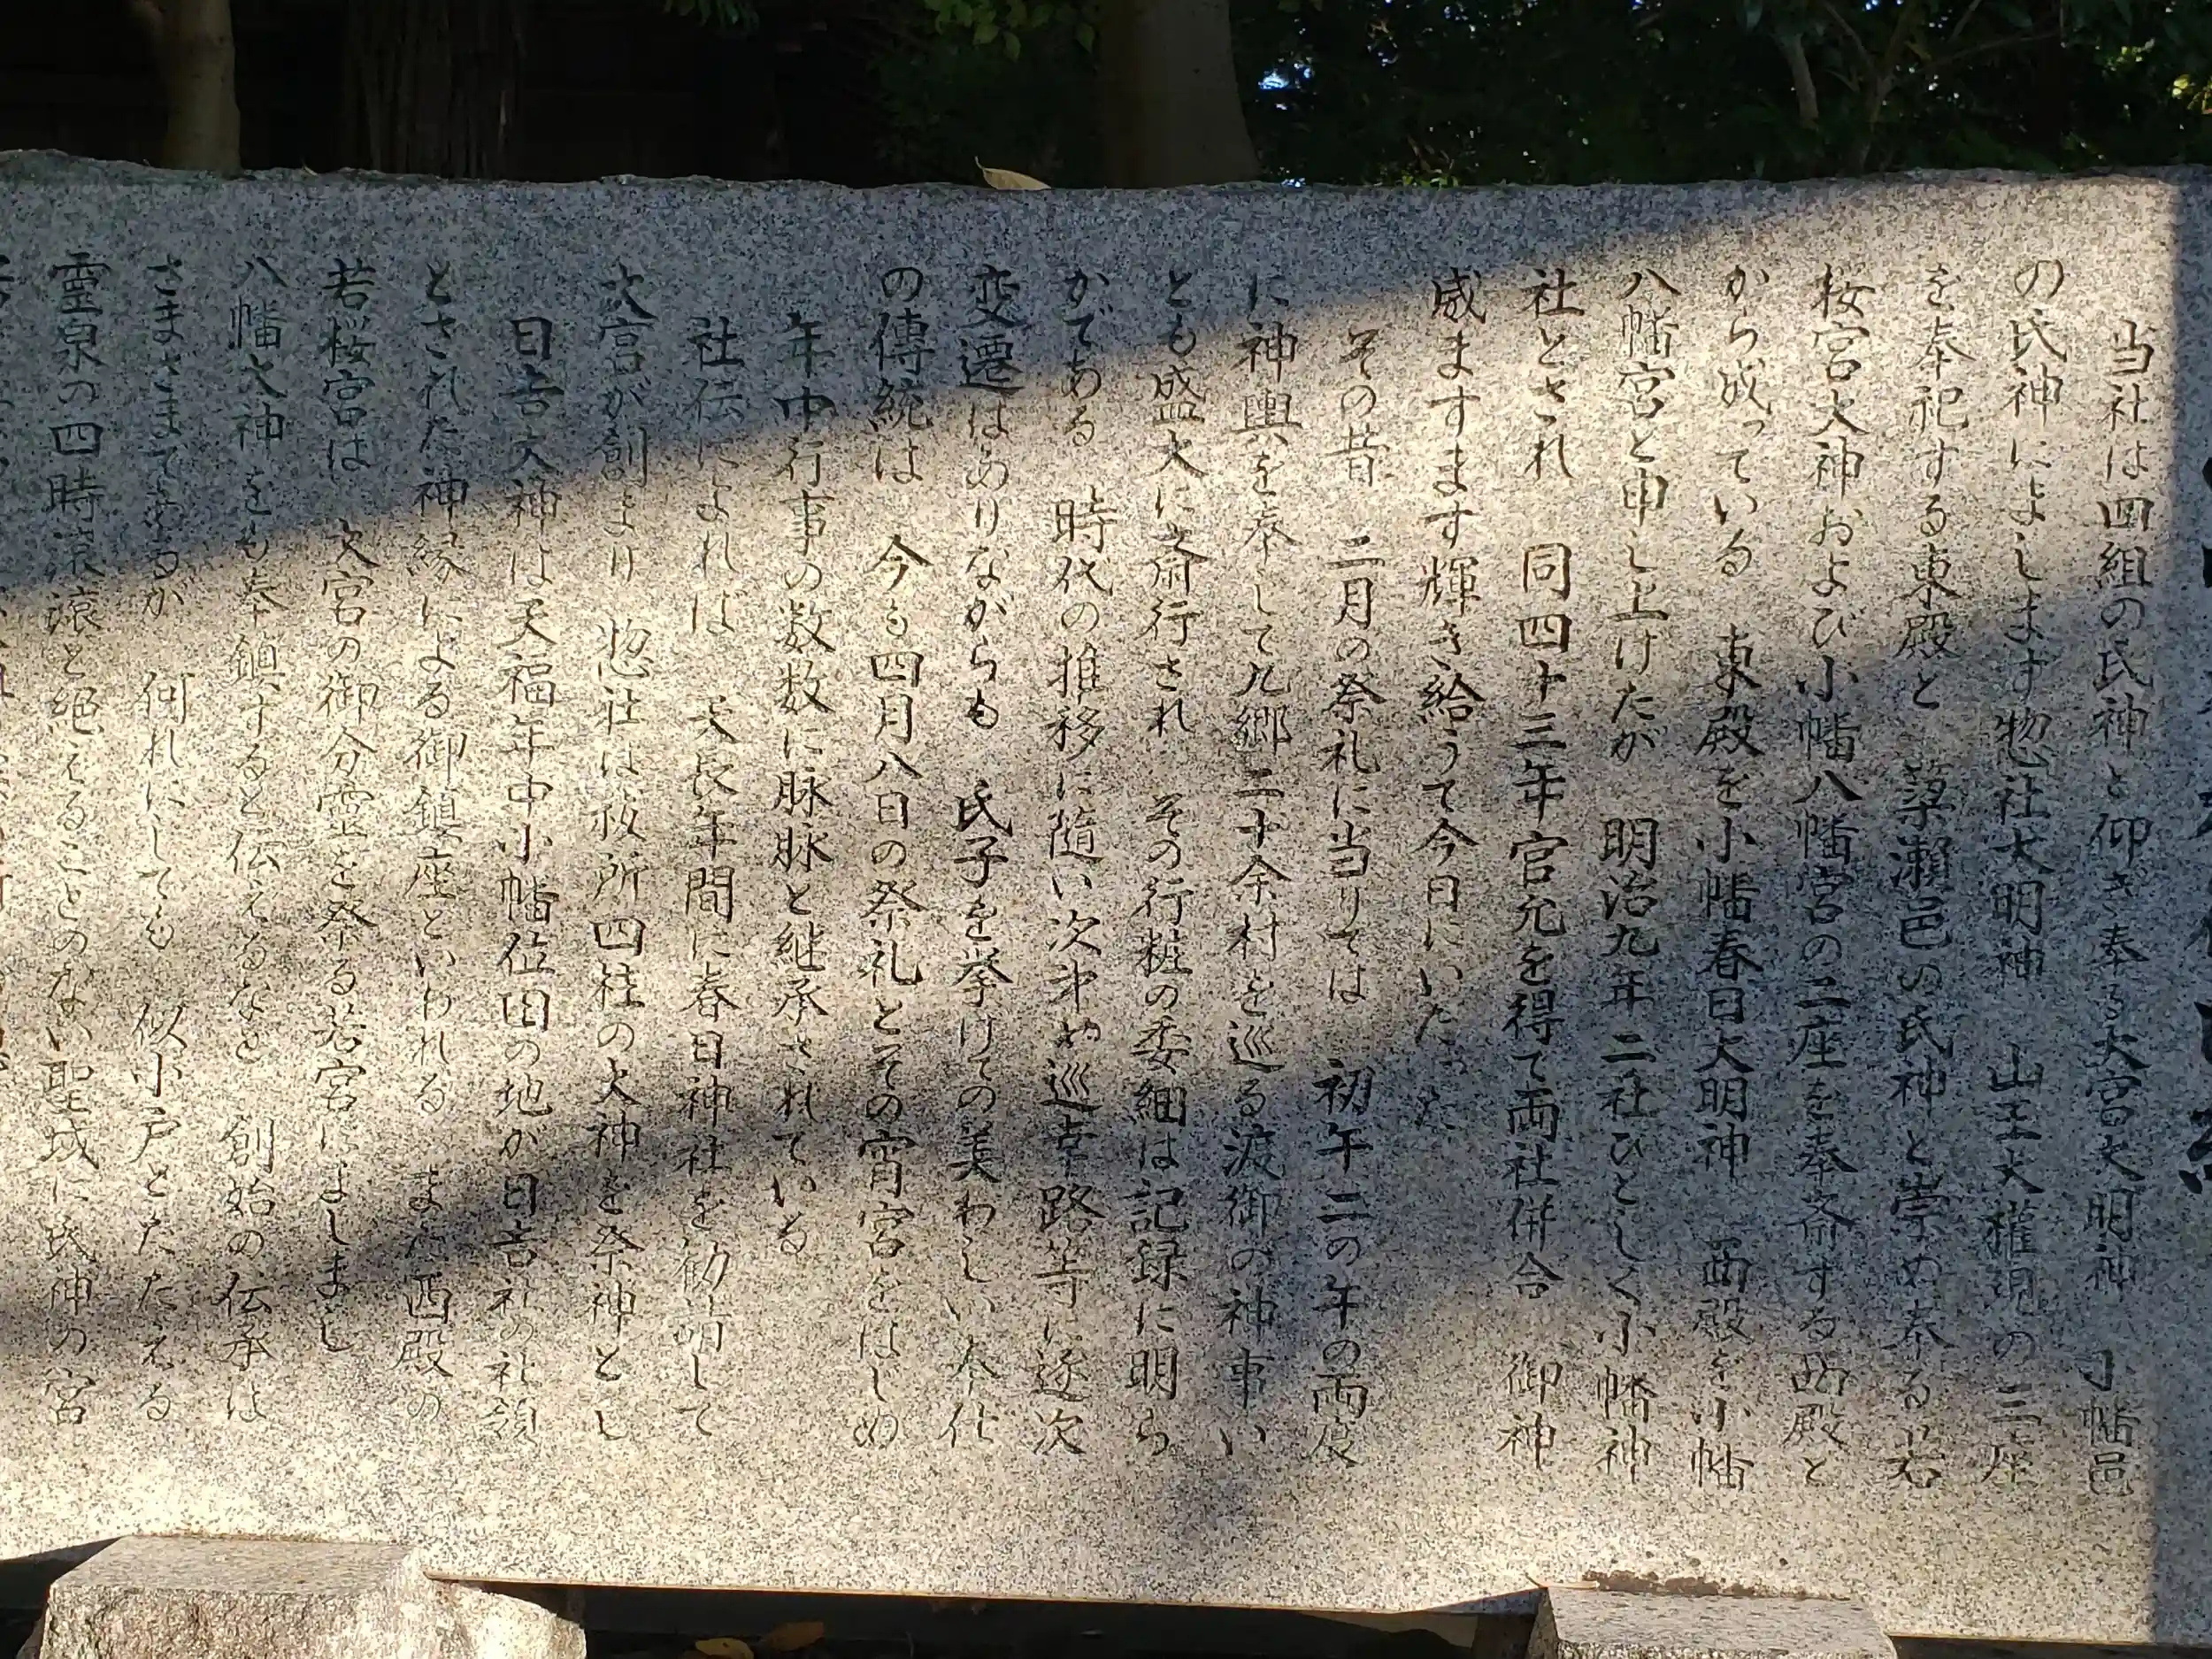 当社は四組の氏神と仰ぎ奉る大宮大明神 小幡邑
の氏神によします惣社大明神 山王大権現の三座
を奉祀する東殿と 簗瀬邑の氏神と崇め奉る若
桜宮大神および小幡八幡宮の二座を奉斎する西殿と
から成っている 東殿を小幡春日大明神 西殿を小幡
八幡宮と申し上げたが 明治九年二社ひとしく小幡神
社とされ 同四十三年官允を得て両社併合 御神
威ますます輝き給うて今日にいたった
その昔 二月の祭礼に当りては 初午二の午の両度
に神輿を奉じて九郷二十余村を巡る渡御の神事い
とも盛大に斎行され その行粧の委細は記録に明ら
かである 時代の推移に随い次第や巡幸路等に逐次
変遷はありながらも 氏子を挙げての美わしい奉仕
の傳統は 今も四月八日の祭礼とその宵宮をはじめ
年中行事の数数に脉脉と継承されている
社伝によれば 天長年間に春日神社を勧請して
大宮が創まり 惣社は祓所四柱の大神を祭神とし
日吉大神は天福年中小幡位田の地が日吉社の社領
とされた神縁による御鎮座といわれる また西殿の
若桜宮は 大宮の御分霊を祭る若宮によしまし
八幡大神をも奉鎮すると伝えるなど 創始の伝承は
さまざまであるが 何れにしても 似小戸とたたえる
霊泉の四時滾滾と絶えることのない聖域に氏神の宮